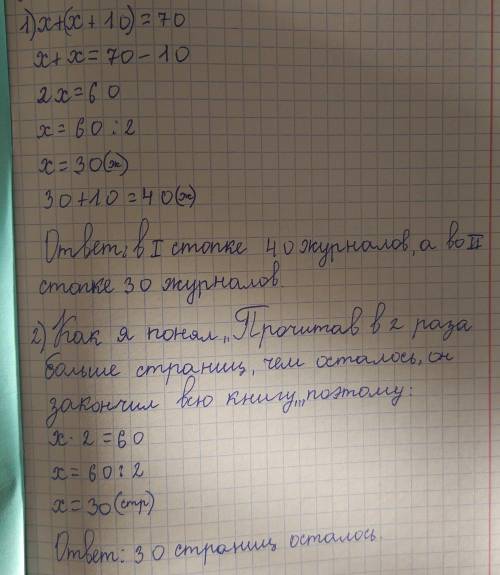 1) x+(x+10)=70
x+x=70-10
2x=60
x=60:2
x=30(ж)
30+10=40(ж)
Ответ: в I стопке 40 журналов, а во II
стопке 30 журналов.
2) Как я понял,, Прочитав в 2 раза
больше страниц, чем осталось, он
закончил всю книгу,,, поэтому:
x·2=60
x=60:2
x=30(стр)
Ответ: 30 страниц осталось.